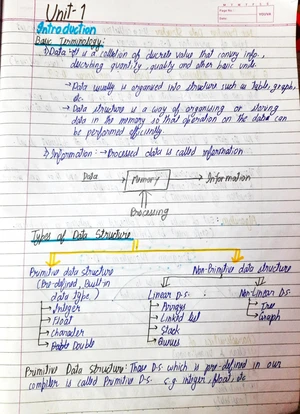 Unit-1
Introduction
Basic Terminology:
1) Data → It is a collection of discrete value that convey info.
describing quantity, quality and other basic units.
→ Data usually is organised into structure such as table, graph,
etc.
→ Data structure is a way of organising or storing
data in the memory so that operation on the data can
be performed efficiently.
2) Information: → Processed data is called information
Data → Memory → Information
Processing
Types of Data Structure
Primitive data structure
(Pre-defined, Built-in
data type)
Integer
Float
Character
Double
Non-Primitive data structure
Linear D.s.
Arrays
Linked list
Stack
Queues
Non-Linear D.s
Tree
Graph
Primitive Data structure: Those D.s which is pre-defined in our
compiler is called Primitive D.s. e.g integer, float, etc